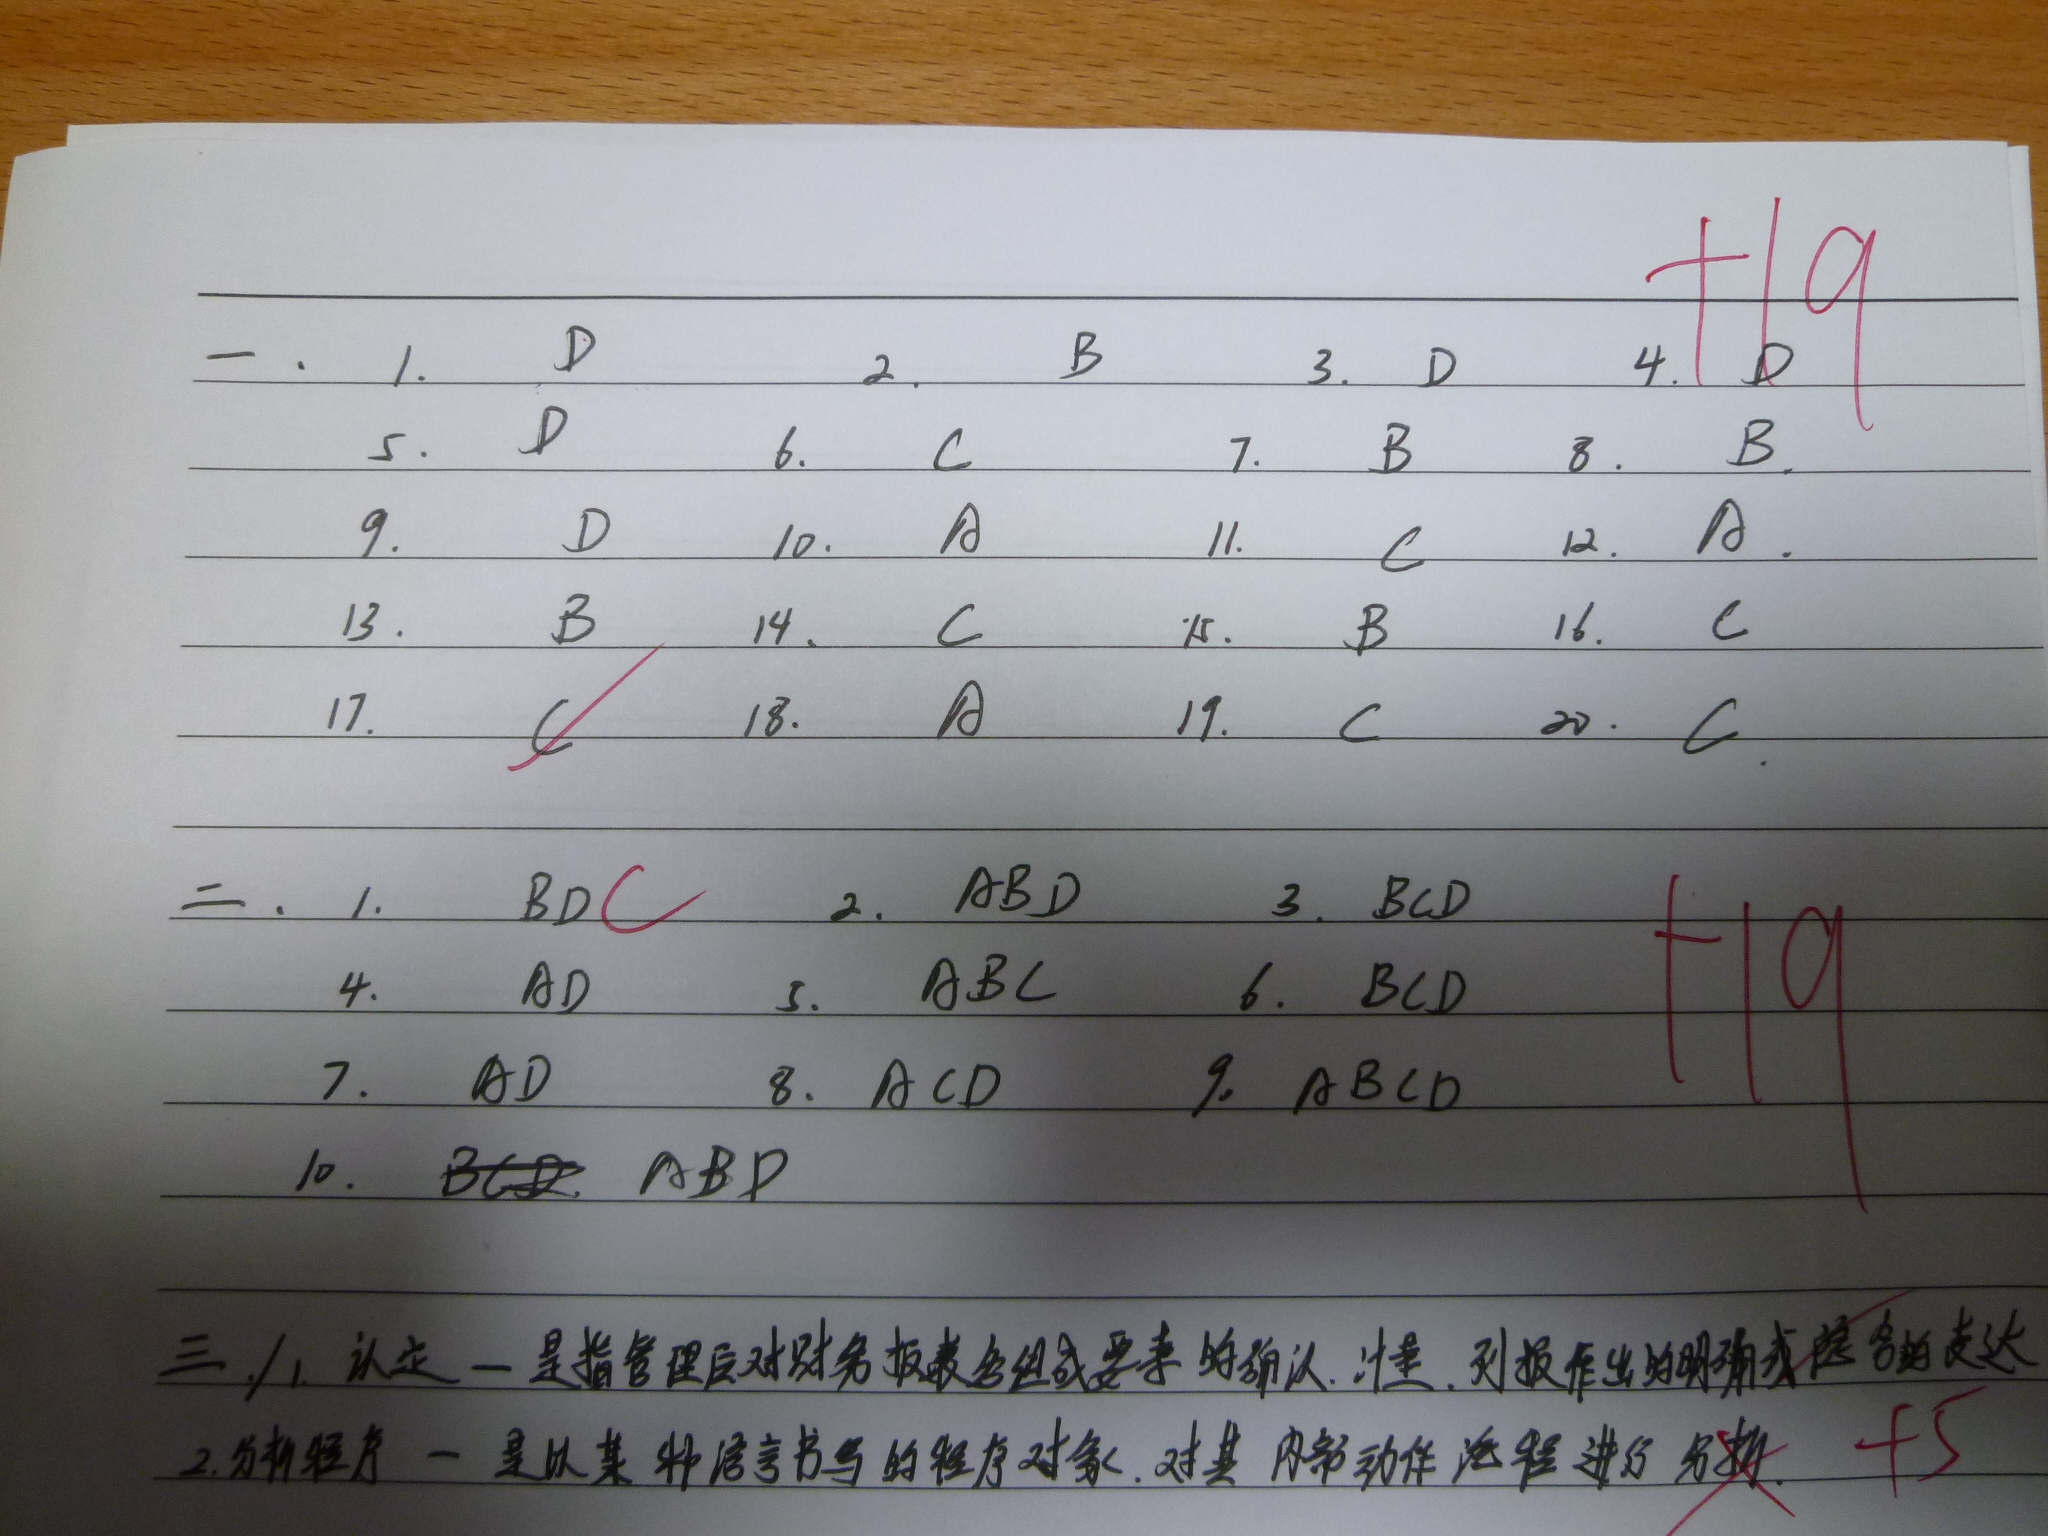 +19
一. 1. D 2. B 3. D 4. D
5. D 6. C 7. B 8. B.
9. D 10. A 11. C 12. A.
13. B 14. C 15. B 16. C
17. C 18. A 19. C 20. C.
二. 1. BD C 2. ABD 3. BCD
+19
4. AD 5. ABC 6. BCD
7. AD 8. ACD 9. ABCD
10. BCD. ABD
三./1. 认定 — 是指管理层对财务报表各组成要素的确认.计量.列报作出的明确或隐含的表达
2.分析程序 — 是以某种语言书写的程序对象.对其内部动作流程进行分析. +5